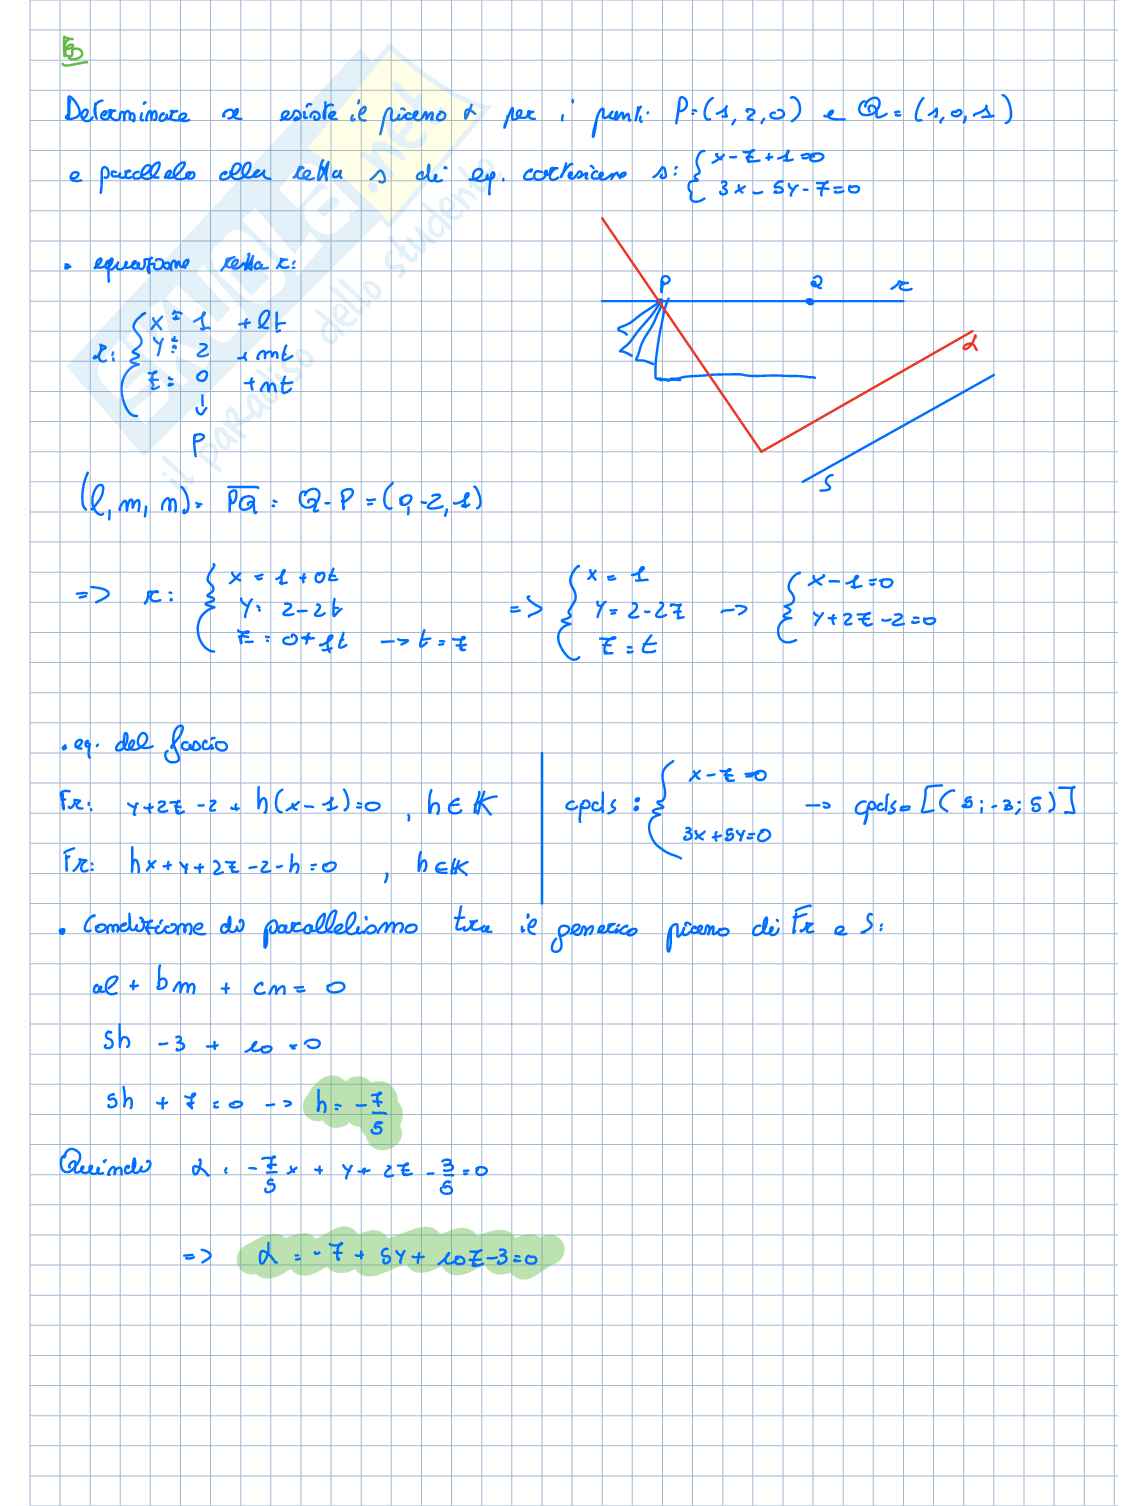 Es
Determinare se esiste il piano α per i punti P=(1,2,0) e Q=(1,0,1)
e parallelo alla retta s di eq. cartesiana s: { x-z+1=0
3x-5y-7=0
• equazione retta r:
r: { x = 1 + lt
y = 2 + mt
z = 0 + nt
↓
P
P Q r
α
s
(l, m, n) = PQ = Q-P = (0,-2,1)
=> r: { x = 1 + 0t
y = 2-2t
z = 0+1t -> t = z
=> { x = 1
y = 2-2z
z = t
-> { x-1=0
y+2z-2=0
• eq. del fascio
Fr: y+2z-2+h(x-1)=0 , h∈K
Fr: hx+y+2z-2-h=0 , h∈K
cpds: { x-z=0
3x+5y=0
-> cpds= [(5;-3;5)]
• Condizione di parallelismo tra il generico piano di Fr e S:
al + bm + cn = 0
5h -3 + 10 = 0
5h + 7 = 0 -> h = -7/5
Quindi α: -7/5 x + y + 2z - 3/5 = 0
=> α = -7 + 5y + 10z-3=0
SKUOLA.net
il paradiso dello studente